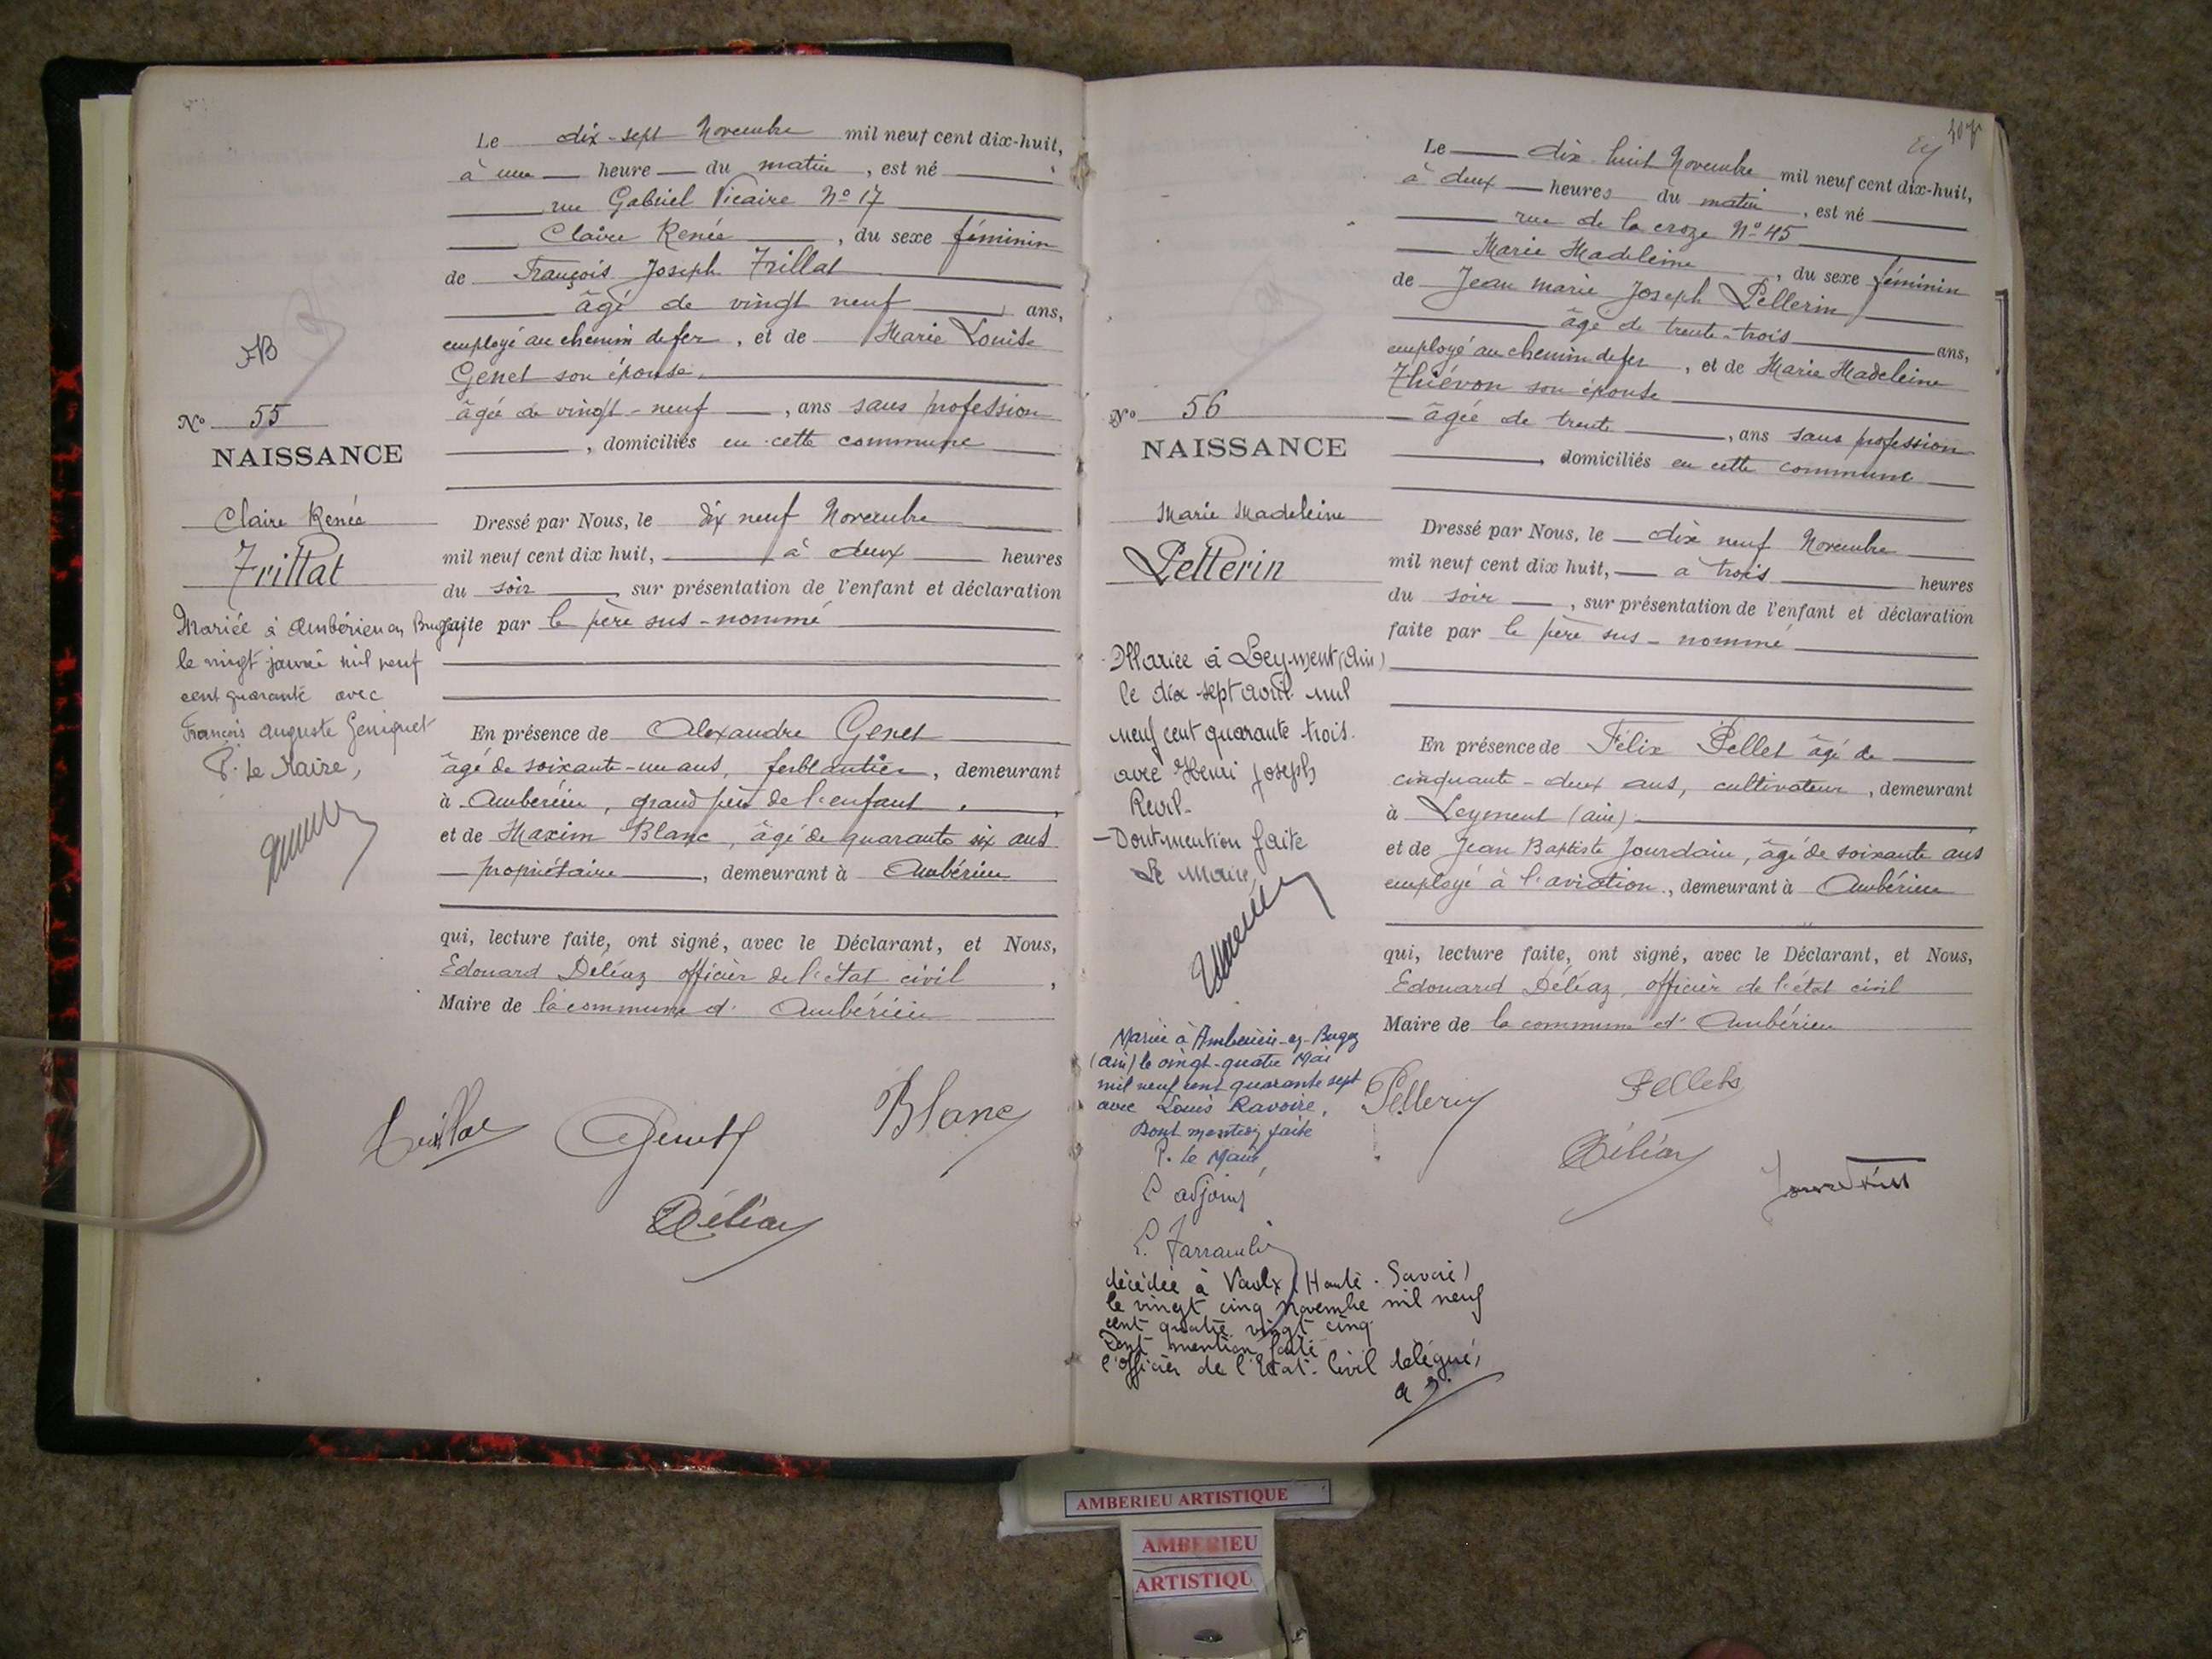 Le dix-sept Novembre mil neuf cent dix-huit,
à une heure du matin, est né
rue Gabriel Vicaire Nº 17
Claire Renée, du sexe féminin
de François Joseph Trillat
âgé de vingt neuf ans,
employé au chemin de fer, et de Marie Louise
Genet son épouse.
âgée de vingt-neuf, ans sans profession
, domiciliés en cette commune
Nº 55
NAISSANCE
Claire Renée
Trillat
Mariée à Ambérieu en Bugey
le vingt janvier mil neuf
cent quarante avec
François Auguste Geniquet
P. Le Maire,
Dressé par Nous, le dix neuf Novembre
mil neuf cent dix huit, à deux heures
du soir, sur présentation de l'enfant et déclaration
faite par le père sus-nommé
En présence de Alexandre Genet
âgé de soixante-un ans, ferblantier, demeurant
à Ambérieu, grand père de l'enfant,
et de Maxim Blanc, âgé de quarante six ans
propriétaire, demeurant à Ambérieu
qui, lecture faite, ont signé, avec le Déclarant, et Nous,
Edouard Déléaz officier de l'état civil,
Maire de la commune d'Ambérieu
Trillat Genet Blanc
Déléaz
Le dix-huit Novembre mil neuf cent dix-huit,
à deux heures du matin, est né
rue de la croze Nº 45
Marie Madeleine, du sexe féminin
de Jean marie Joseph Pellerin
âgé de trente-trois ans,
employé au chemin de fer, et de Marie Madeleine
Thiévon son épouse
âgée de trente, ans sans profession
, domiciliés en cette commune
Nº 56
NAISSANCE
Marie Madeleine
Pellerin
Mariée à Leyment (Ain)
le dix-sept avril mil
neuf cent quarante trois.
avec Henri Joseph
Revil-
-Dont mention faite
Le Maire
Mariée à Ambérieu-en-Bugey
(Ain) le vingt-quatre Mai
mil neuf cent quarante sept
avec Louis Ravoire,
Dont mention faite
P. Le Maire,
L'adjoint
décédée à Vaulx (Haute-Savoie)
le vingt cinq novembre mil neuf
cent quatre vingt cinq
Dont mention faite
l'Officier de l'Etat-Civil délégué,
Dressé par Nous, le dix neuf Novembre
mil neuf cent dix huit, à trois heures
du soir, sur présentation de l'enfant et déclaration
faite par le père sus-nommé
En présence de Félix Pellet âgé de
cinquante-deux ans, cultivateur, demeurant
à Leyment (ain)
et de Jean Baptiste Jourdain, âgé de soixante ans
employé à l'aviation, demeurant à Ambérieu
qui, lecture faite, ont signé, avec le Déclarant, et Nous,
Edouard Déléaz, officier de l'état civil
Maire de la commune d'Ambérieu
Pellerin Pellet
Déléaz
AMBERIEU ARTISTIQUE
AMBERIEU
ARTISTIQU